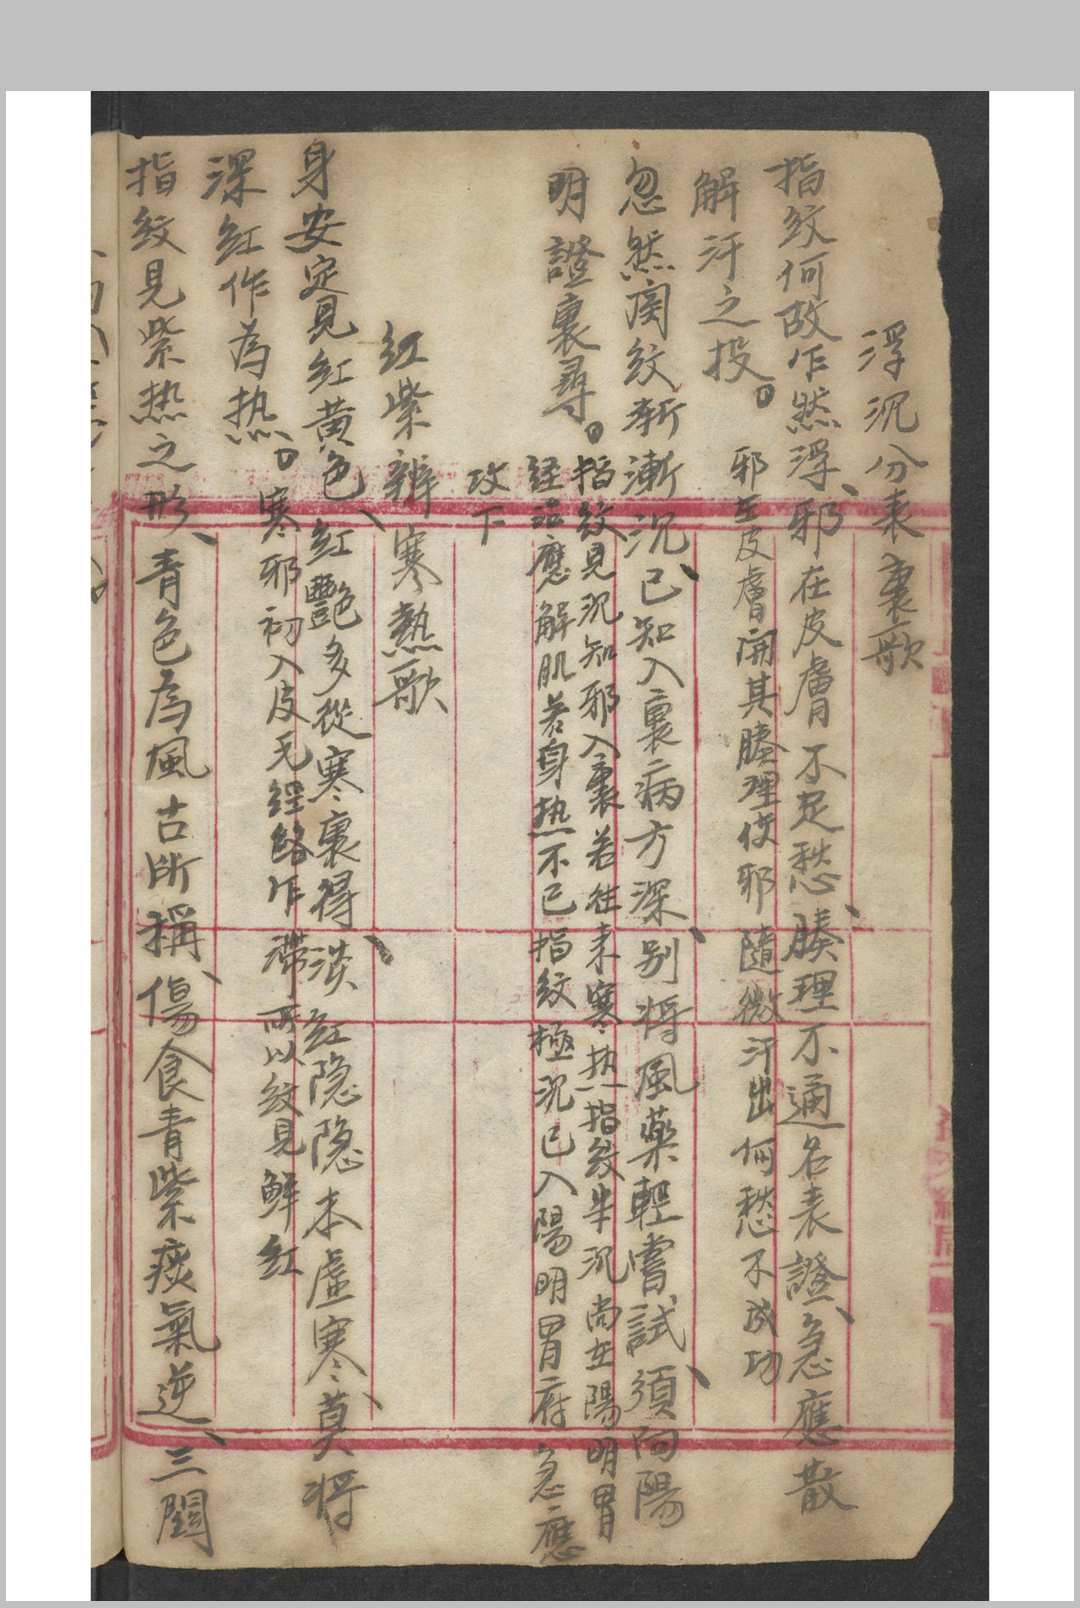 浮沉分表裏歌
指紋何故乍然浮、邪在皮膚不足愁、腠理不通名表證、急應散
解汗之投。
邪在皮膚開其腠理使邪隨微汗出何愁不成功
忽然関紋漸漸沉、已知入裏病方深、别將風藥輕嘗試、須向陽
明證裏尋。
指紋見沉知邪入裏若往来寒热指紋半沉尚在陽明胃
経法應解肌若身热不已指紋極沉已入陽明胃府急應
攻下
紅紫辨寒熱歌
身安定見紅黃色、紅艷多從寒裏得、淡紅隐隐本虛寒、莫將
深紅作為热。
寒邪初入皮毛経絡乍滯所以紋見鮮紅
指紋見紫热之形、青色為風古所稱、傷食青紫痰氣逆、三關